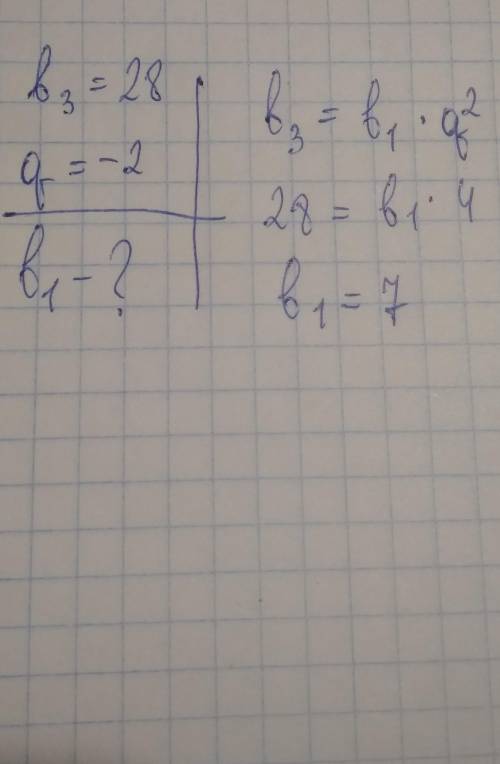 b₃ = 28
q = -2
b₁ - ?
b₃ = b₁ · q²
28 = b₁ · 4
b₁ = 7